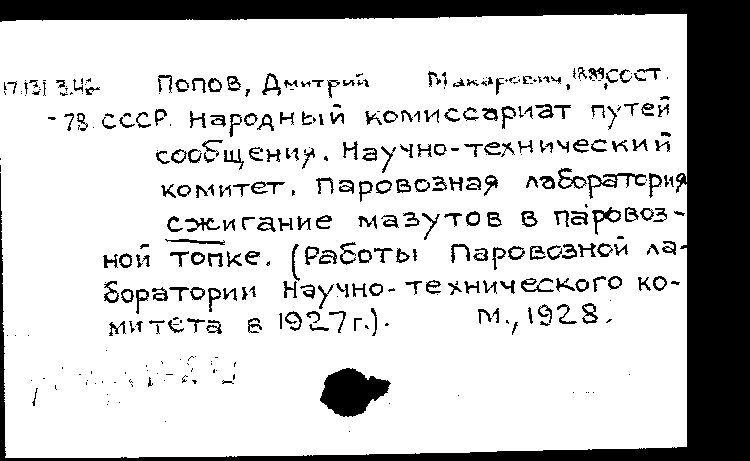 17.131.3.46- Попов, Дмитрий Макарович, 1889, сост.
-78. СССР. Народный комиссариат путей
сообщения. Научно-технический
комитет. Паровозная лаборатория
сжигание мазутов в паровоз-
ной топке. (Работы Паровозной ла-
боратории Научно-технического ко-
митета в 1927 г.). М., 1928.